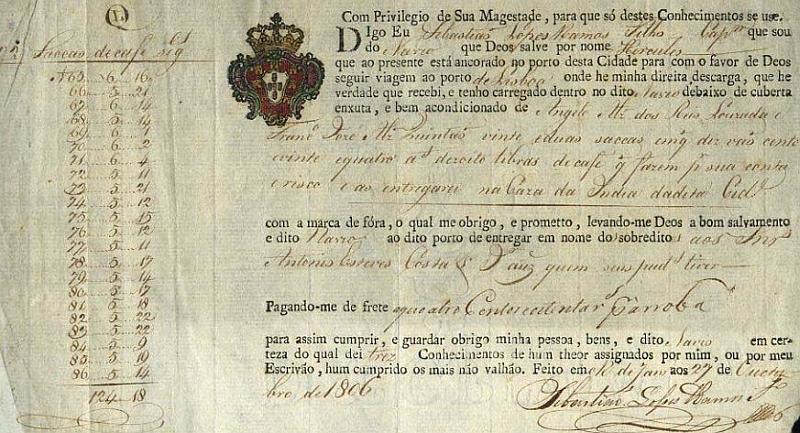 L
Saccas de café seg
No 65 6 16
66 5 21
67 6 14
68 5 14
69 6 1
70 6 2
71 6 4
72 5 11
73 5 21
74 5 12
75 5 15
76 5 12
77 5 11
78 5 17
79 5 14
80 5 17
81 5 18
82 5 22
83 5 22
84 5 9
85 5 19
86 5 14
124 18
Com Privilegio de Sua Magestade, para que só destes Conhecimentos se use.
DIgo Eu Sebastiaõ Lopes Ramos Filho Cap.m que sou
do Navio que Deos salve por nome Hercules
que ao presente está ancorado no porto desta Cidade para com o favor de Deos
seguir viagem ao porto de Lisboa onde he minha direita descarga, que he
verdade que recebi, e tenho carregado dentro no dito Navio debaixo de cuberta
enxuta, e bem acondicionado de Angelo Mz. dos Reis Lourada e
Franc.o Jose Mz. vinte eduas saccas em q dez vaõ cento
evinte equatro a.s dezoito libras de café q fazem p.r sua conta
e risco e as entregarei na Caza da India dadita Cid.e
com a marca de fóra, o qual me obrigo, e prometto, levando-me Deos a bom salvamento
e dito Navio ao dito porto de entregar em nome do sobredito s aos Snr.s
Antonio Esteves Costa & quem seus tiver
Pagando-me de frete aquatro Centos eoitenta r.s P arroba
para assim cumprir, e guardar obrigo minha pessoa, bens, e dito Navio em cer-
teza do qual dei trez Conhecimentos de hum theor assignados por mim, ou por meu
Escrivão, hum cumprido os mais não valhão. Feito em R de Jan.o aos 27 de Outu
bro de 1806
Sebastiaõ Lopes Ramos